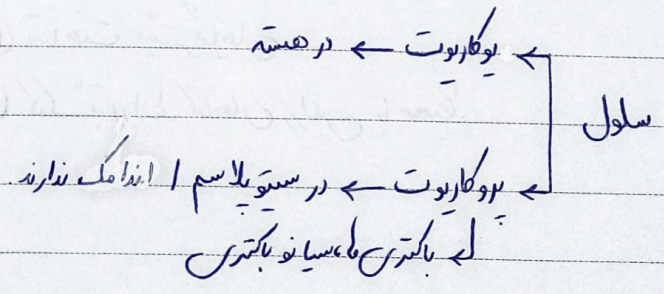 یوکاریوت ← در هسته
سلول
پروکاریوت ← در سیتوپلاسم / اندامک ندارند
باکتری ها، سیانوباکتری